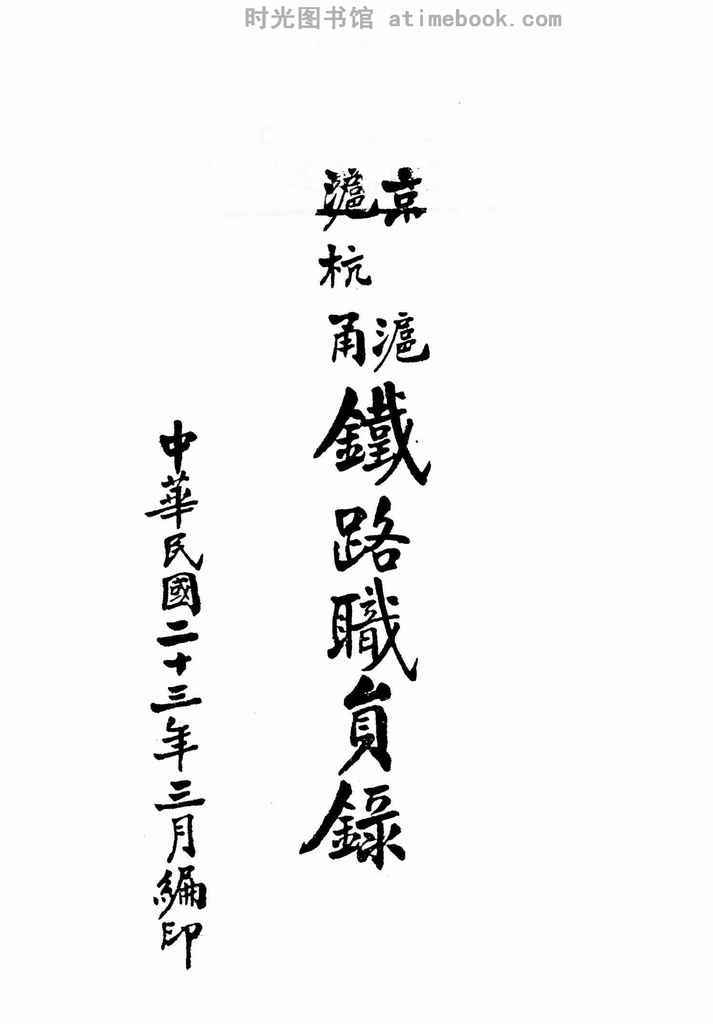 时光图书馆 atimebook.com
京滬
滬杭甬
鐵路職員錄
中華民國二十三年三月編印